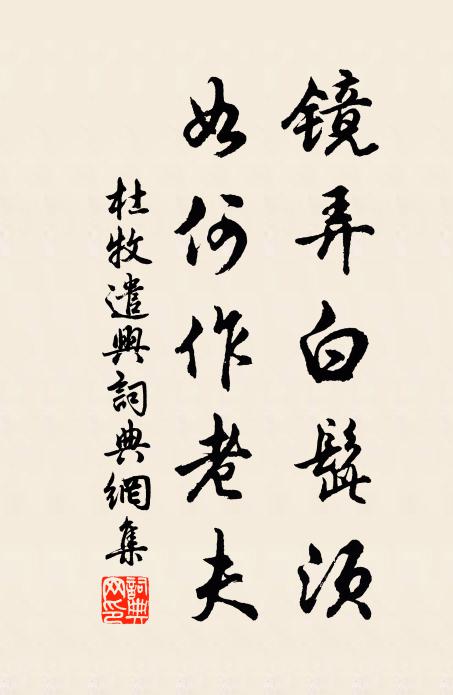 鏡弄白髭須
如何作老夫
杜牧遣興詞典網集
詞典网印